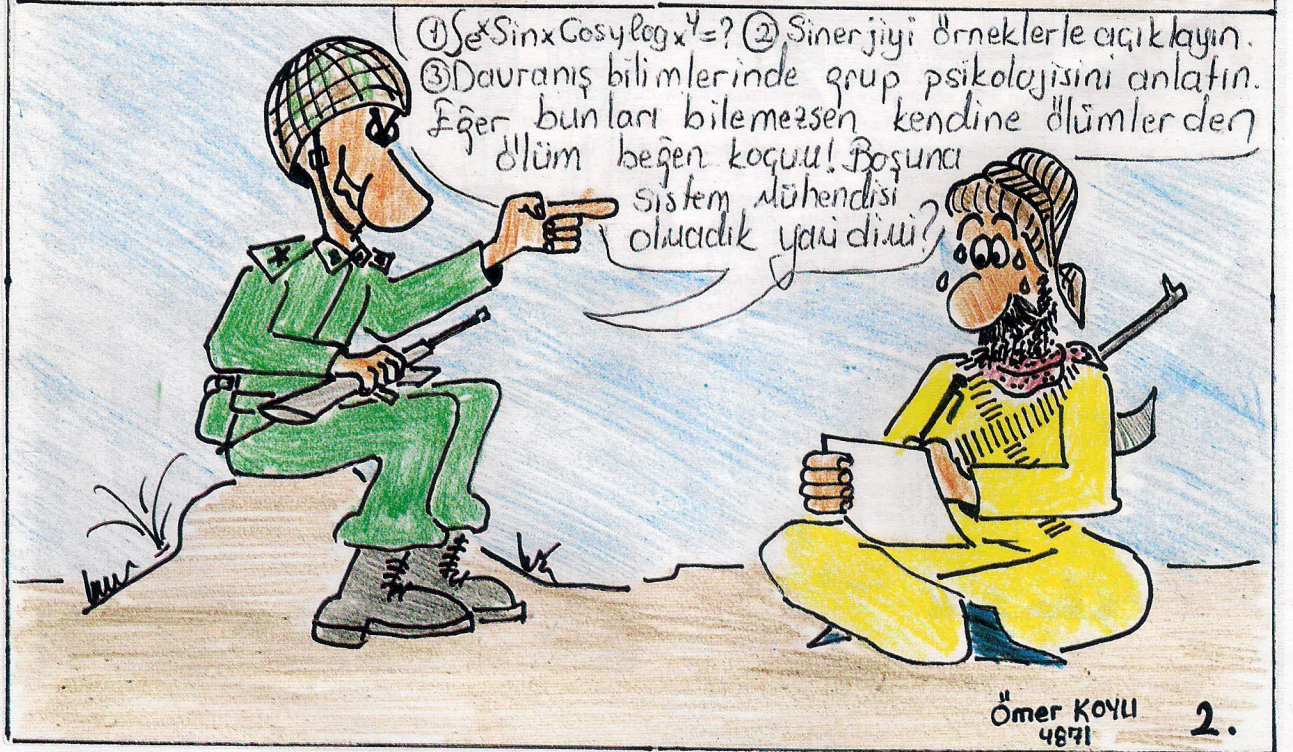 ① ∫eˣSinxCosylogxʸ=? ② Sinerjiyi örneklerle açıklayın.
③ Davranış bilimlerinde grup psikolojisini anlatın.
Eğer bunları bilemezsen kendine ölümlerden
ölüm beğen koçuu! Boşuna
sistem Mühendisi
olmadık yani dimi?
Ömer KOYLI
4871
2.